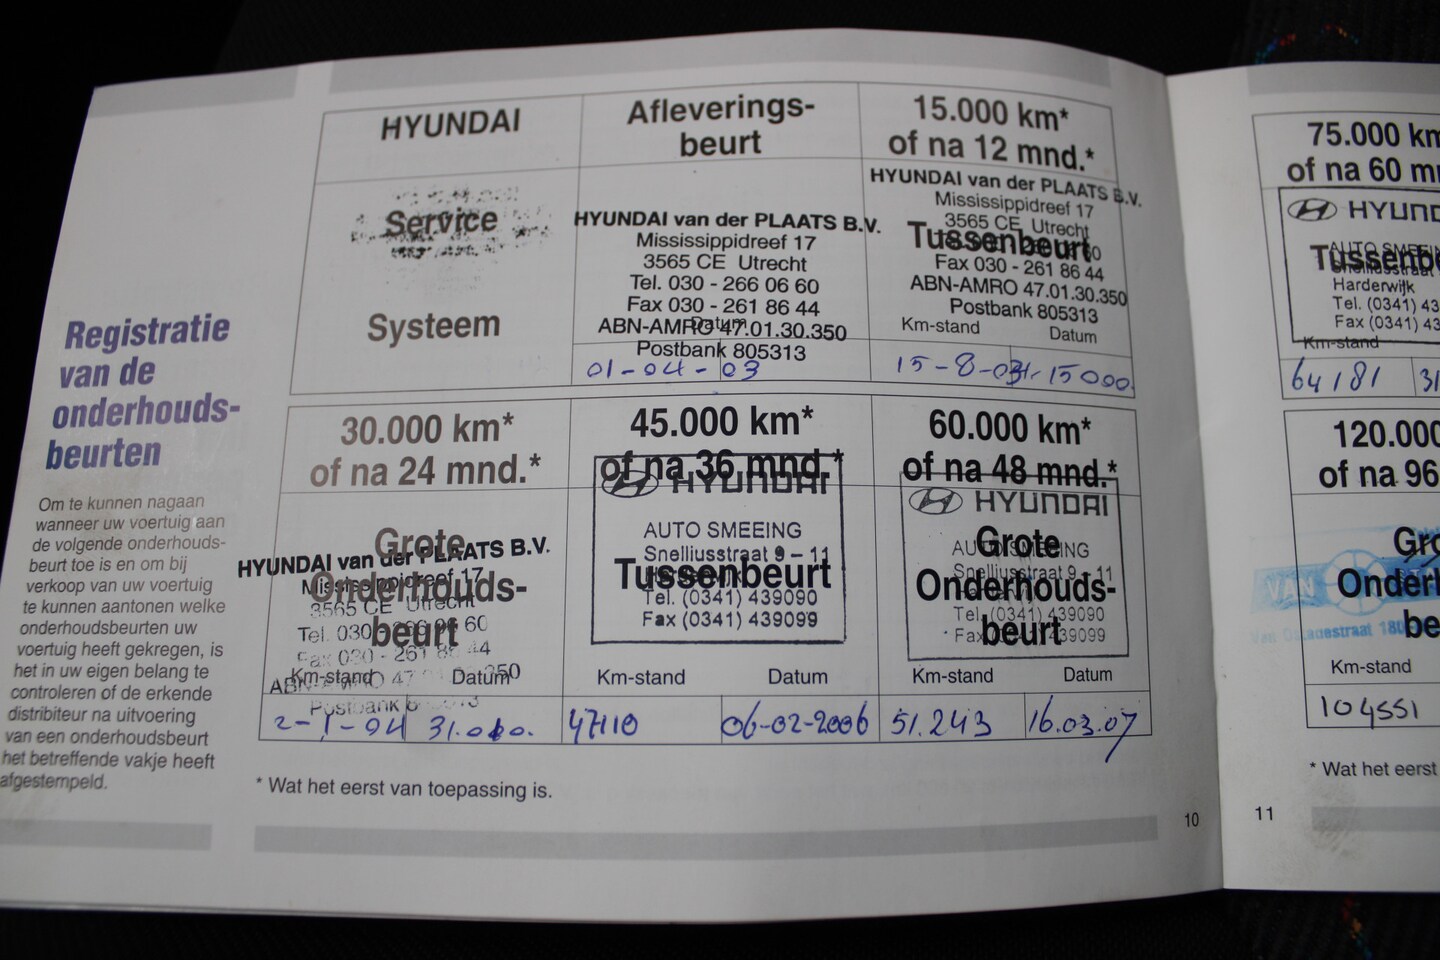 Registratie
van de
onderhouds-
beurten
Om te kunnen nagaan
wanneer uw voertuig aan
de volgende onderhouds-
beurt toe is en om bij
verkoop van uw voertuig
te kunnen aantonen welke
onderhoudsbeurten uw
voertuig heeft gekregen, is
het in uw eigen belang te
controleren of de erkende
distribiteur na uitvoering
van een onderhoudsbeurt
het betreffende vakje heeft
afgestempeld.
HYUNDAI
Service
Systeem
Afleverings-
beurt
HYUNDAI van der PLAATS B.V.
Mississippidreef 17
3565 CE Utrecht
Tel. 030 - 266 06 60
Fax 030 - 261 86 44
Datum
ABN-AMRO 47.01.30.350
Postbank 805313
01-04-03
15.000 km*
of na 12 mnd.*
HYUNDAI van der PLAATS B.V.
Mississippidreef 17
3565 CE Utrecht
Tussenbeurt
Fax 030 - 261 86 44
ABN-AMRO 47.01.30.350
Postbank 805313
Km-stand Datum
15-8-03 15000.
30.000 km*
of na 24 mnd.*
Grote
HYUNDAI van der PLAATS B.V.
Mississippidreef 17
Onderhouds-
3565 CE Utrecht
beurt
Tel. 030
Fax 030 - 261 86 44
Km-stand Datum
2-1-04
45.000 km*
of na 36 mnd.*
HYUNDAI
AUTO SMEEING
Snelliusstraat 9 – 11
Tussenbeurt
Tel. (0341) 439090
Fax (0341) 439099
Km-stand Datum
47110 06-02-2006
60.000 km*
of na 48 mnd.*
HYUNDAI
Grote
AUTO SMEEING
Snelliusstraat 9 - 11
Onderhouds-
Tel. (0341) 439090
beurt
Fax (0341) 439099
Km-stand Datum
51.243 16.03.07
* Wat het eerst van toepassing is.
10
75.000 km
of na 60
HYUND
AUTO SMEEIN
Tussenbe
Snelliusstraat
Harderwijk
Tel. (0341) 43
Fax (0341) 43
Km-stand
64181 31
120.000
of na 96
Gro
VAN
Onderh
be
Km-stand
104551
* Wat het eerst
11